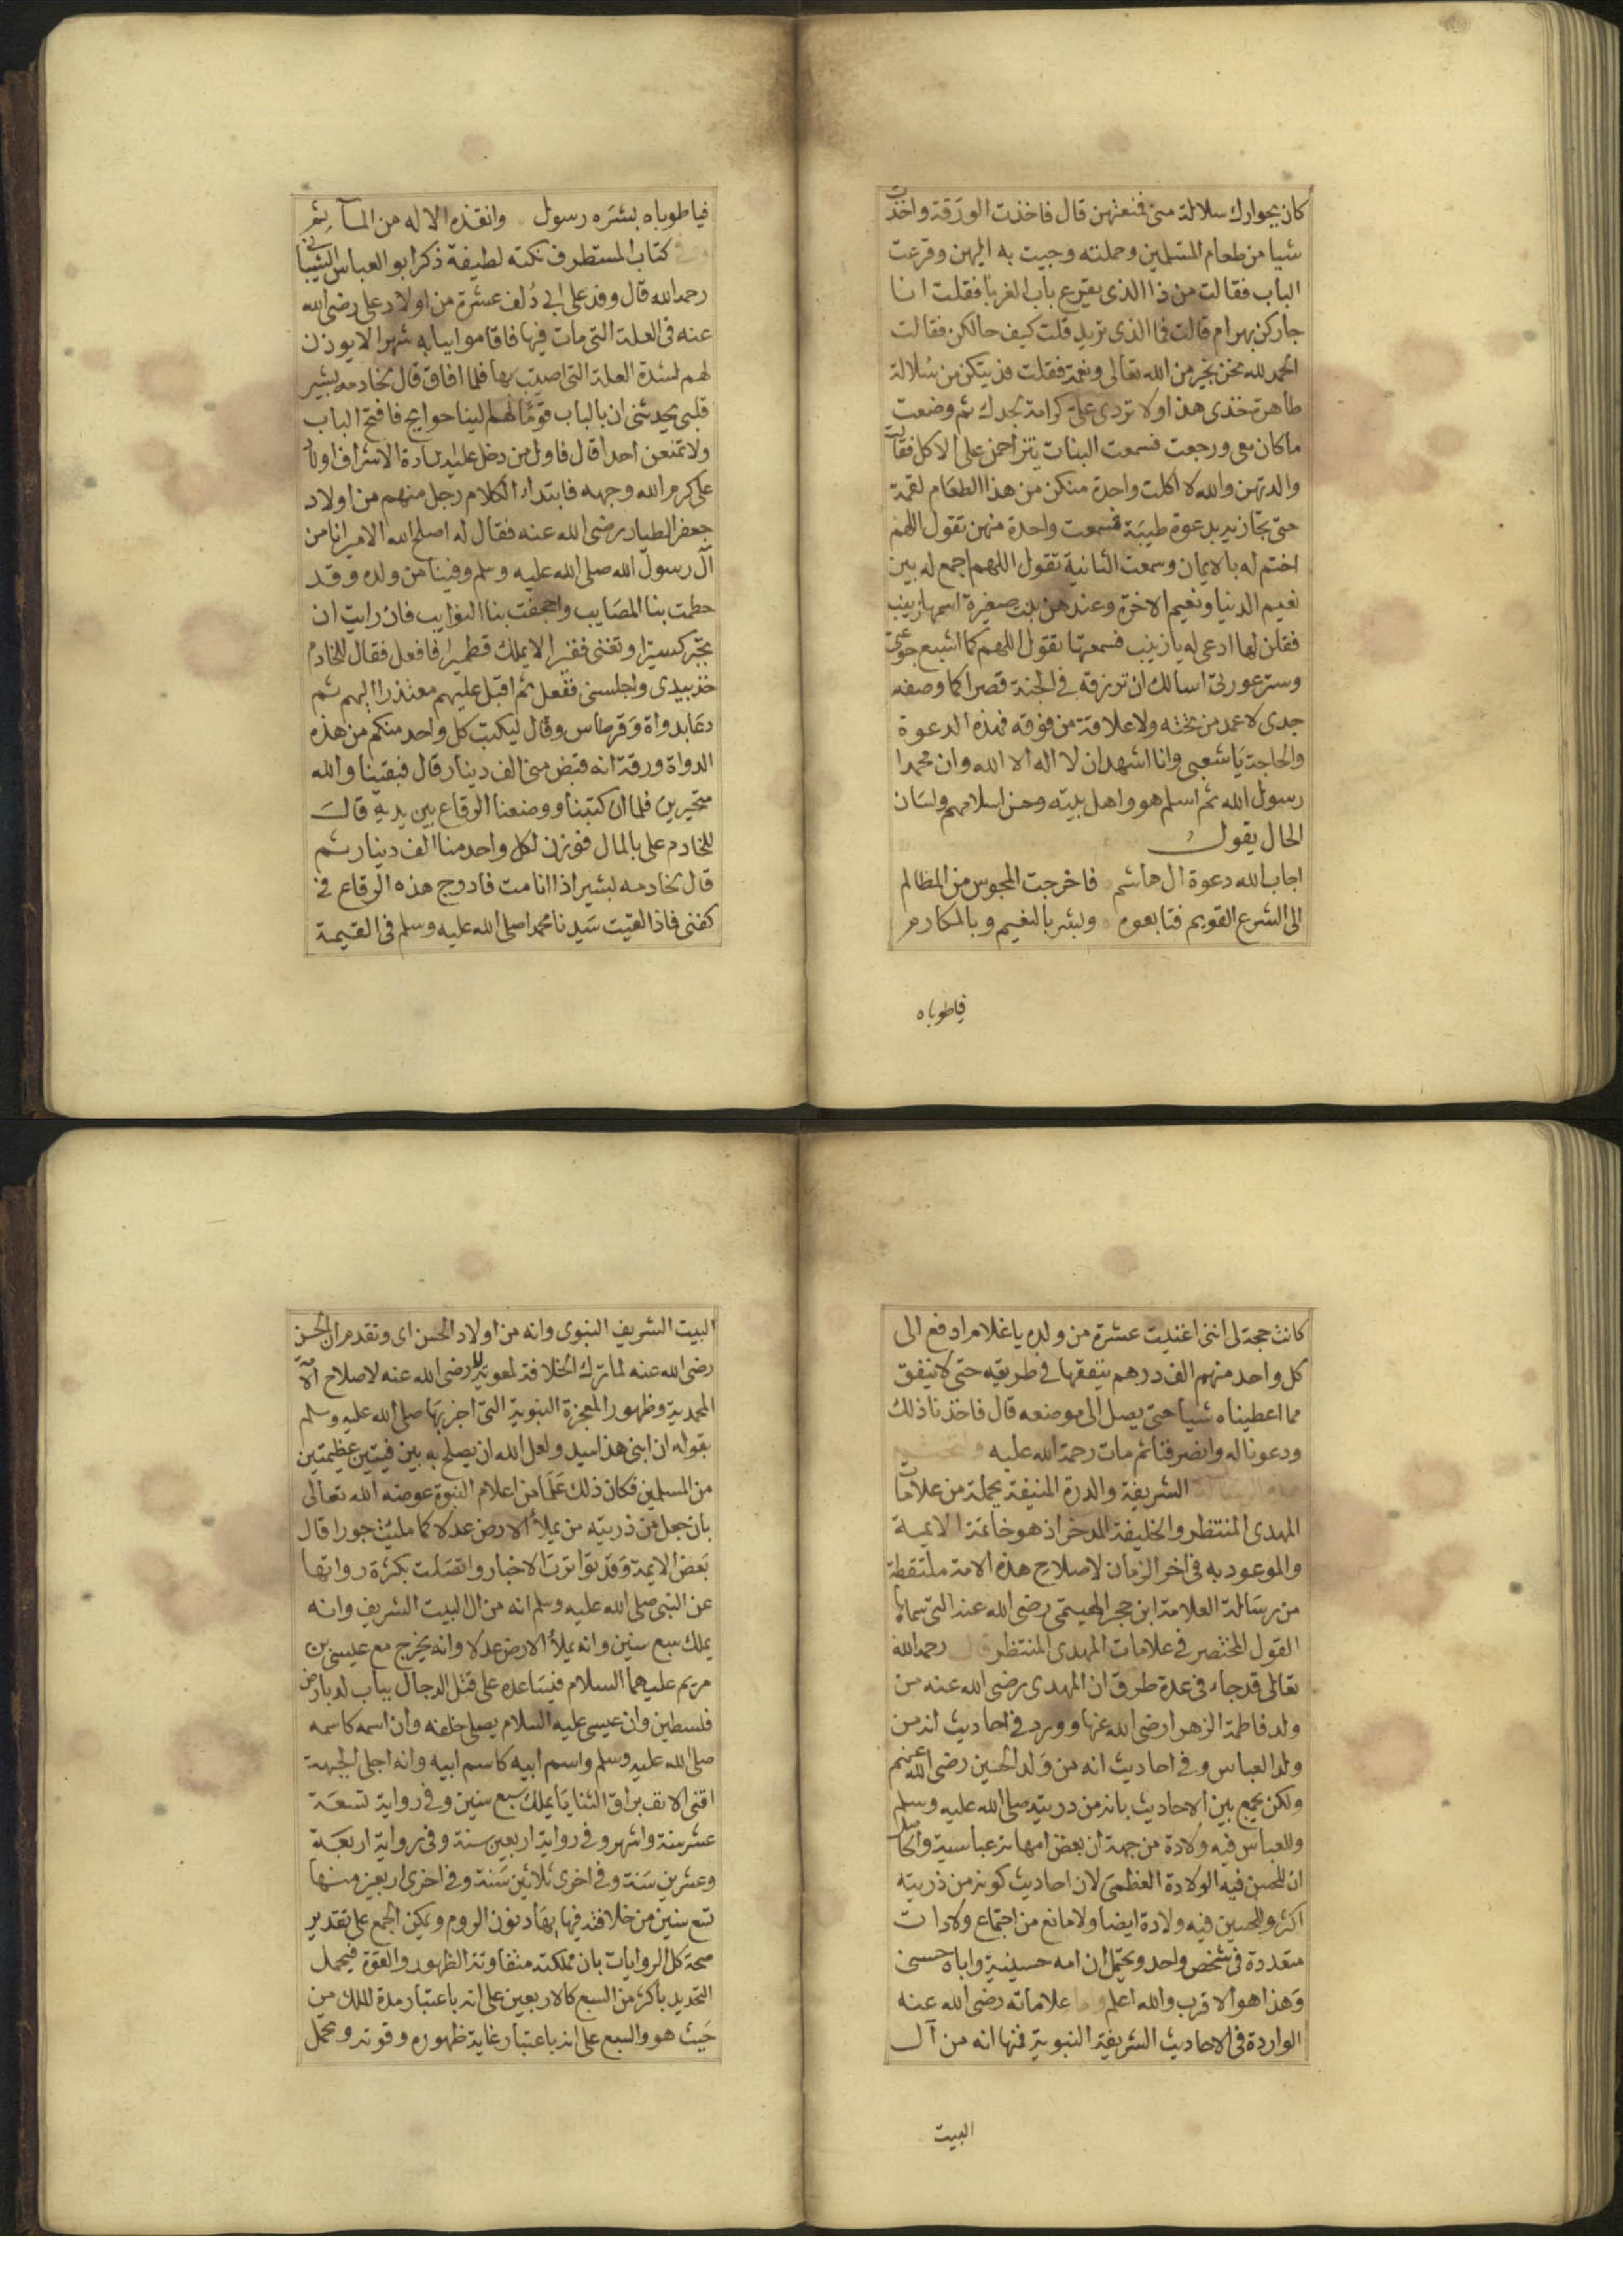 كان بجوارك سلالة مني فمنعتهن قال فاخذت الورقة واخذت
شيا من طعام المسلمين وحملته وجيت به اليهن وقرعت
الباب فقالت من ذا الذي يقرع باب الغربا فقلت انا
جاركن بهرام قالت فما الذي تريد قلت كيف حالكن فقالت
الحمد لله نحن بخير من الله تعالى ونعمة فقلت فديتكن من سلالة
طاهرة خذى هذا ولا تردى على كرامة لجدك ثم وضعت
ما كان معى ورجعت فسمعت البنات يتزاحمن على الاكل فقالت
والدتهن والله لا اكلت واحدة منكن من هذا الطعام لقمة
حتى تجازيه بدعوة طيبة فسمعت واحدة منهن تقول اللهم
اختم له بالايمان وسمعت الثانية تقول اللهم اجمع له بين
نعيم الدنيا ونعيم الاخرة وعندهن بنت صغيرة اسمها زينب
فقلن لها ادعى له يا زينب فسمعتها تقول اللهم كما اشبع جوعتى
وستر عورتى اسالك ان ترزقه في الجنة قصرا كما وصفه
جدى لا عمد من تحته ولا علاقة من فوقه فهذه الدعوة
والحاجة يا شعبى وانا اشهد ان لا اله الا الله وان محمدا
رسول الله ثم اسلم هو واهل بيته وحسن اسلامهم ولسان
الحال يقول
اجاب الله دعوة ال هاشم فاخرجت المجوس من المظالم
الى الشرع القويم فتابعوه وبشر بالنعيم وبالمكارم
فياطوباه
فياطوباه بشره رسول وانقذه الاله من المآثم
كتاب المستطرف نكتة لطيفة ذكر ابو العباس الشيباني
رحمه الله قال وفد على ابي دُلف عشرة من اولاد على رضى الله
عنه فى العلة التى مات فيها فاقاموا ببابه شهرا لا يوذن
لهم لشدة العلة التى اصيب بها فلما افاق قال لخادمه بشير
قلبى يحدثنى ان بالباب قومًا لهم الينا حوايج فافتح الباب
ولا تمنعن احدا قال فاول من دخل عليه السادة الاشراف اولاد
على كرم الله وجهه فابتداء الكلام رجل منهم من اولاد
جعفر الطيار رضى الله عنه فقال له اصلح الله الامير انا من
آل رسول الله صلى الله عليه وسلم وفينا من ولده وقد
حطمت بنا المصايب واجحفت بنا النوايب فان رايت ان
تجبر كسيرا وتغنى فقيرا لا يملك قطميرا فافعل فقال للخادم
خذ بيدى واجلسنى ففعل ثم اقبل عليهم معتذرا اليهم ثم
دعا بدواة وقرطاس وقال ليكتب كل واحد منكم من هذه
الدواة ورقة انه قبض منى الف دينار قال فبقينا والله
متحيرين فلما ان كتبنا ووضعنا الرقاع بين يديه قال
للخادم على بالمال فوزن لكل واحد منا الف دينار ثم
قال لخادمه بشير اذا انا مت فادرج هذه الرقاع في
كفنى فاذا لقيت سيدنا محمدا صلى الله عليه وسلم فى القيمة
كانت حجة لى اننى اغنيت عشرة من ولده يا غلام ادفع الى
كل واحد منهم الف درهم ينفقها في طريقه حتى لا ينفق
مما اعطيناه شيا حتى يصل الى موضعه قال فاخذنا ذلك
ودعونا له وانصرفنا ثم مات رحمة الله عليه ولنختم
هذه الرسالة الشريفة والدرة المنيفة بجملة من علامات
المهدى المنتظر والخليفة المدخر اذ هو خاتمة الايمة
والموعود به فى اخر الزمان لاصلاح هذه الامة ملتقطة
من رسالة العلامة ابن حجر الهيتمى رضى الله عنه التى سماها
القول المختصر في علامات المهدى المنتظر قال رحمه الله
تعالى قد جاء فى عدة طرق ان المهدى رضى الله عنه من
ولد فاطمة الزهرا رضى الله عنها وورد في احاديث انه من
ولد العباس وفي احاديث انه من ولد الحسين رضى الله عنهم
ولكن يجمع بين الاحاديث بانه من ذريته صلى الله عليه وسلم
وللعباس فيه ولادة من جهة ان بعض امهاته عباسية والحاصل
ان للحسن فيه الولادة العظمى لان احاديث كونه من ذريته
اكثر وللحسين فيه ولادة ايضا ولا مانع من اجتماع ولادات
متعددة فى شخص واحد ويحتمل ان امه حسينية واباه حسنى
وهذا هو الاقرب والله اعلم واما علاماته رضى الله عنه
الواردة فى الاحاديث الشريفة النبوية فمنها انه من آل
البيت
البيت الشريف النبوى وانه من اولاد الحسن اى وتقدم ان الحسن
رضى الله عنه لما ترك الخلافة لمعوية رضى الله عنه لاصلاح الامة
المحمدية وظهور المعجزة النبوية التى اخبر بها صلى الله عليه وسلم
بقوله ان ابنى هذا سيد ولعل الله ان يصلح به بين فيتين عظيمتين
من المسلمين فكان ذلك علما من اعلام النبوة عوضه الله تعالى
بان جعل من ذريته من يملأ الارض عدلا كما مليت جورا قال
بعض الايمة وقد تواترت الاخبار واتصلت بكثرة رواتها
عن النبى صلى الله عليه وسلم انه من ال البيت الشريف وانه
يملك سبع سنين وانه يملأ الارض عدلا وانه يخرج مع عيسى بن
مريم عليهما السلام فيساعده على قتل الدجال بباب لد بارض
فلسطين وان عيسى عليه السلام يصلى خلفه وان اسمه كاسمه
صلى الله عليه وسلم واسم ابيه كاسم ابيه وانه اجلى الجبهة
اقنى الانف براق الثنايا يملك سبع سنين وفي رواية تسعة
عشر سنة واشهر وفي رواية اربعين سنة وفى رواية اربعة
وعشرين سنة وفي اخرى ثلاثين سنة وفي اخرى اربعين منها
تسع سنين من خلافته فيها يهادنون الروم ويمكن الجمع على تقدير
صحة كل الروايات بان مملكته متفاوتة الظهور والقوة فيحمل
التحديد باكثر من السبع كالاربعين على انه باعتبار مدة الملك من
حيث هو والسبع على انه باعتبار غاية ظهوره وقوته ويحمل